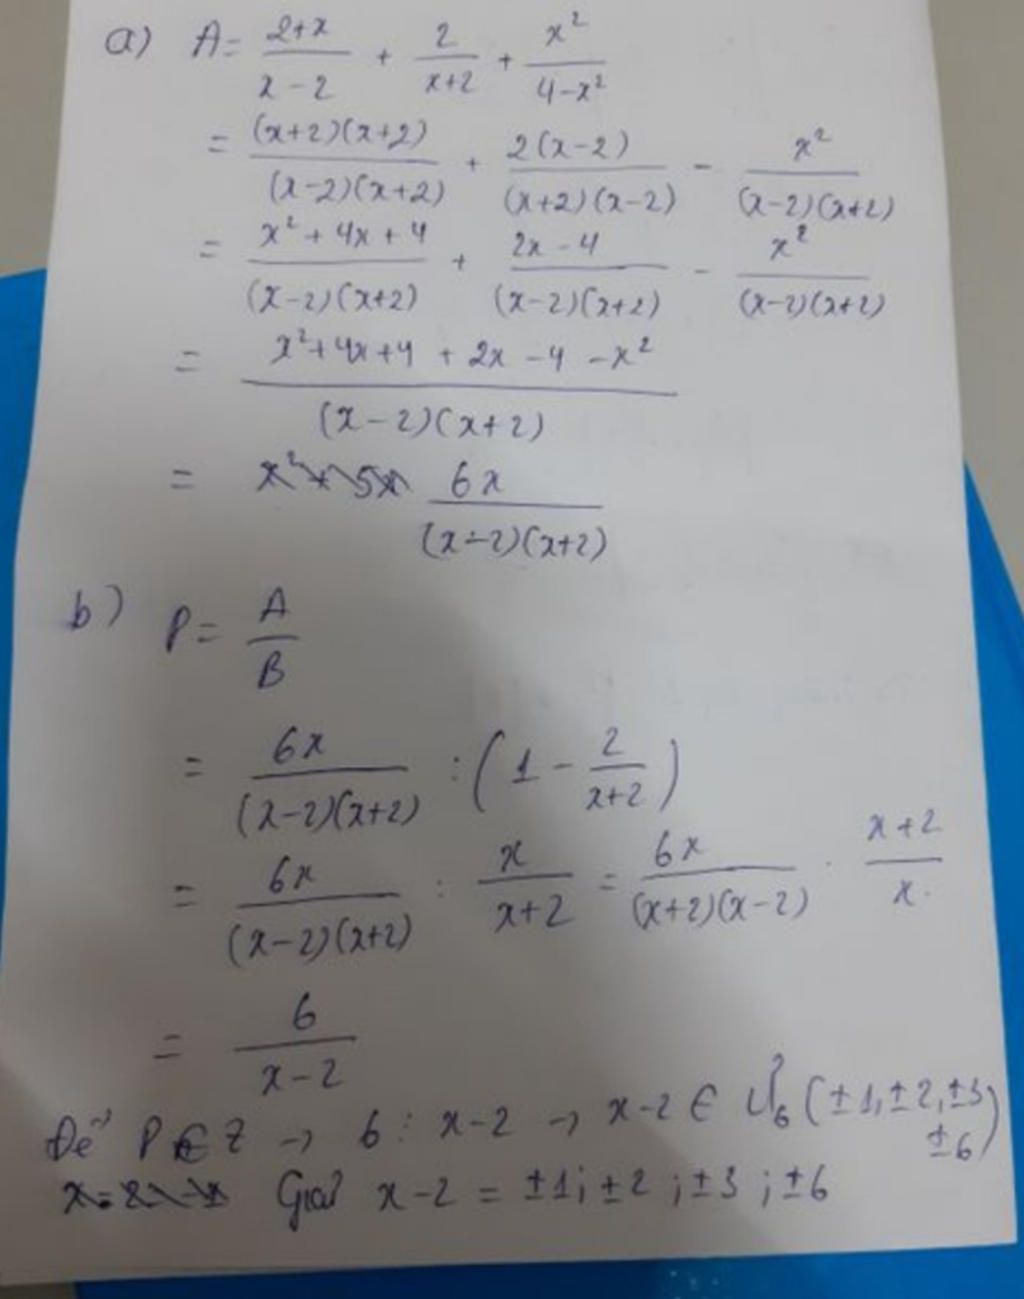 a) A = (2+x)/(x-2) + 2/(x+2) + x²/(4-x²)
= (x+2)(x+2)/(x-2)(x+2) + 2(x-2)/(x+2)(x-2) - x²/(x-2)(x+2)
= (x²+4x+4)/(x-2)(x+2) + (2x-4)/(x-2)(x+2) - x²/(x-2)(x+2)
= (x²+4x+4+2x-4-x²)/(x-2)(x+2)
= x²+5x 6x/(x-2)(x+2)
b) P = A/B
= 6x/(x-2)(x+2) : (1 - 2/(x+2))
= 6x/(x-2)(x+2) : x/(x+2) = 6x/(x+2)(x-2) . (x+2)/x.
= 6/(x-2)
Để P ∈ Z → 6 ⋮ x-2 → x-2 ∈ Ư6 (±1, ±2, ±3
±6)
Giải x-2 = ±1; ±2; ±3; ±6